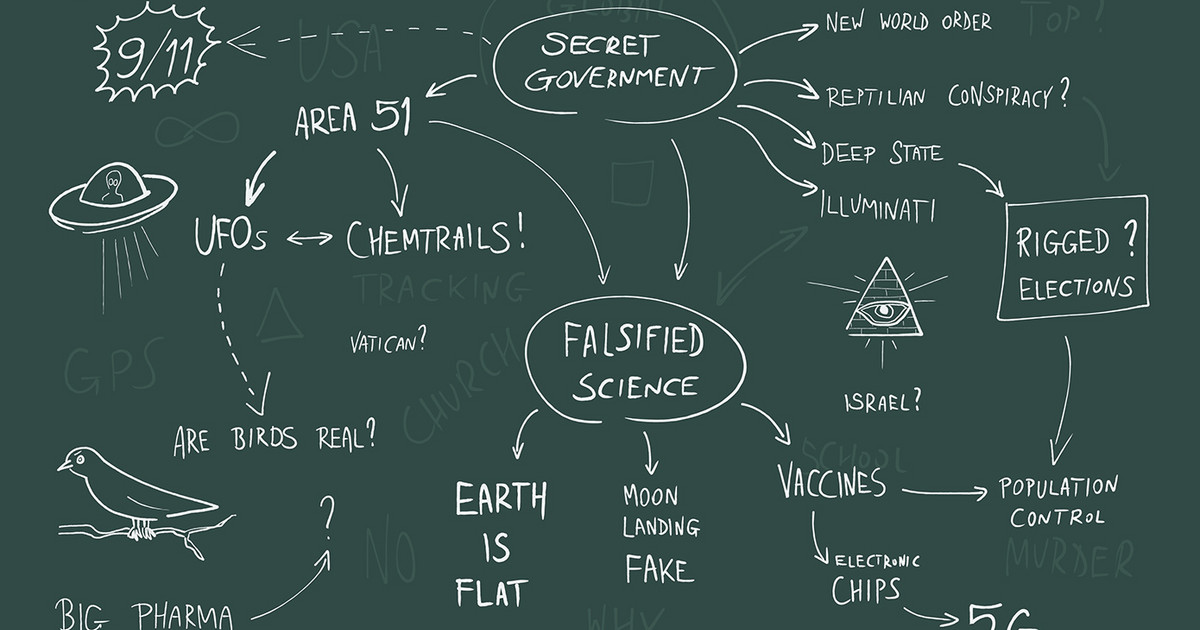 GLOBAL
TOP?
9/11
USA
SECRET
GOVERNMENT
NEW WORLD ORDER
REPTILIAN CONSPIRACY?
AREA 51
DEEP STATE
ILLUMINATI
UFOs
CHEMTRAILS!
RIGGED ?
ELECTIONS
TRACKING
VATICAN?
GPS
CHURCH
FALSIFIED
SCIENCE
ISRAEL?
ARE BIRDS REAL?
SCHOOL
EARTH
IS
FLAT
MOON
LANDING
FAKE
VACCINES
POPULATION
CONTROL
MURDER
?
NO
ELECTRONIC
CHIPS
BIG PHARMA
WHY
5G